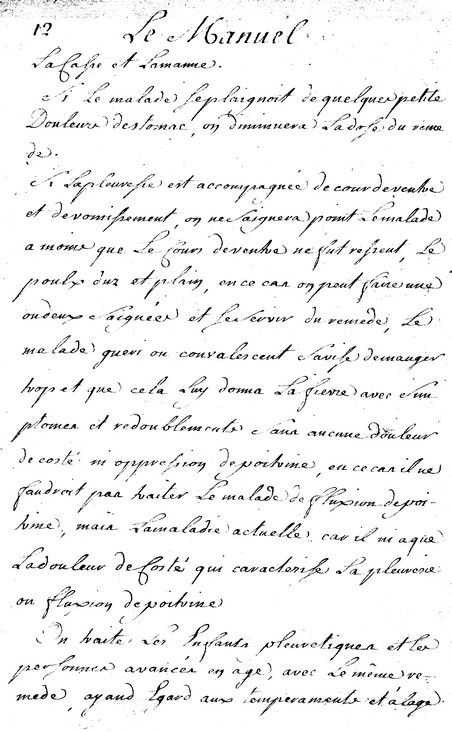 12 Le Manuel
La Casse et Lamanne.
Si Le malade Seplaignoit de quelques petite
Douleurs destomac, on Diminuera Ladose du reme
de.
Si Lapleuresie est accompagnée de cour deventre
et devomissement, on ne Saignera point Lemalade
a moins que Le Cours deventre ne fut ressent, Le
poulx dur et plain, en ce cas on peut faire une
oudeux Saignées et se Servir du remede, Le
malade gueri ou convalescent Savise demanger
trop et que cela Luy donna La fievre avec Sim
ptomes et redoublements Sans aucune douleur
de costé ni oppression depoitrine, en ce cas il ne
faudroit pas traiter Le malade de fluxion depoi-
trine, mais Lamaladie actuelle, car il ni a que
Ladouleur de Costé qui caracterise La pleuresie
ou fluxion depoitrine
On traite Les Enfants pleuretiques et les
personnes avancées en age, avec Le même re-
mede, ayand Egard aux temperaments et alage.